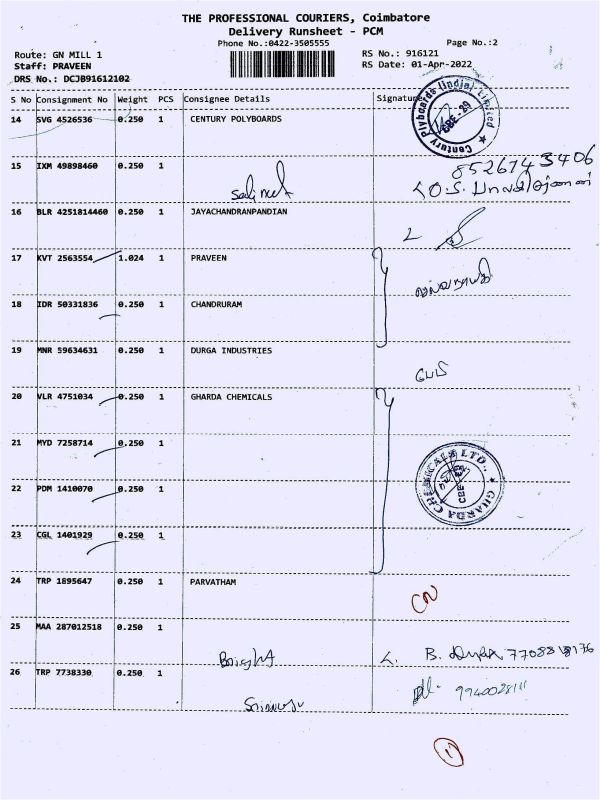 THE PROFESSIONAL COURIERS, Coimbatore
Delivery Runsheet - PCM
Phone No.:0422-3505555
Page No.:2
Route: GN MILL 1
Staff: PRAVEEN
DRS No.: DCJB91612102
RS No.: 916121
RS Date: 01-Apr-2022
S No Consignment No Weight PCS Consignee Details Signature
14 SVG 4526536 0.250 1 CENTURY POLYBOARDS
Century Plyboards (India) Limited
CBE-29
15 IXM 49898460 0.250 1
8526743406
16 BLR 4251814460 0.250 1 JAYACHANDRANPANDIAN
17 KVT 2563554 1.024 1 PRAVEEN
18 IDR 50331836 0.250 1 CHANDRURAM
19 MNR 59634631 0.250 1 DURGA INDUSTRIES
20 VLR 4751034 0.250 1 GHARDA CHEMICALS
21 MYD 7258714 0.250 1
GHARDA CHEMICALS LTD.,
22 PDM 1410070 0.250 1
23 CGL 1401929 0.250 1
24 TRP 1895647 0.250 1 PARVATHAM
CN
25 MAA 287012518 0.250 1
Bright
B.
26 TRP 7738330 0.250 1